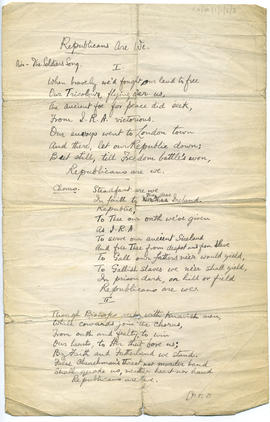 Republicans Are We.
Air - The Soldiers Song.
I
When bravely we'd fought our land to free
Our Tricolour flying o'er us,
An ancient foe for peace did seek,
From I.R.A. victorious.
Our envoys went to London town
And there, let our Republic down;
But still, till Freedom battle's won,
Republicans are we.
Chorus. Steadfast are we
In faith to Ireland.
Republic
To Thee our oath we've given
As I.R.A.
To serve our ancient Sireland
And free Thee from despot and from slave
To Gall our fathers ne'er would yield,
To Gallish slaves we ne'er shall yield,
In prison dark, on hill or field
Republicans are we
II
Though Bishops with
While cowards join the chorus,
From oath and fealty to win
Our hearts, to Him that
By Faith and Fatherland we stand.
threat nor murder band
Shall us, neither heart nor hand
Republicans are we.
P.T.O